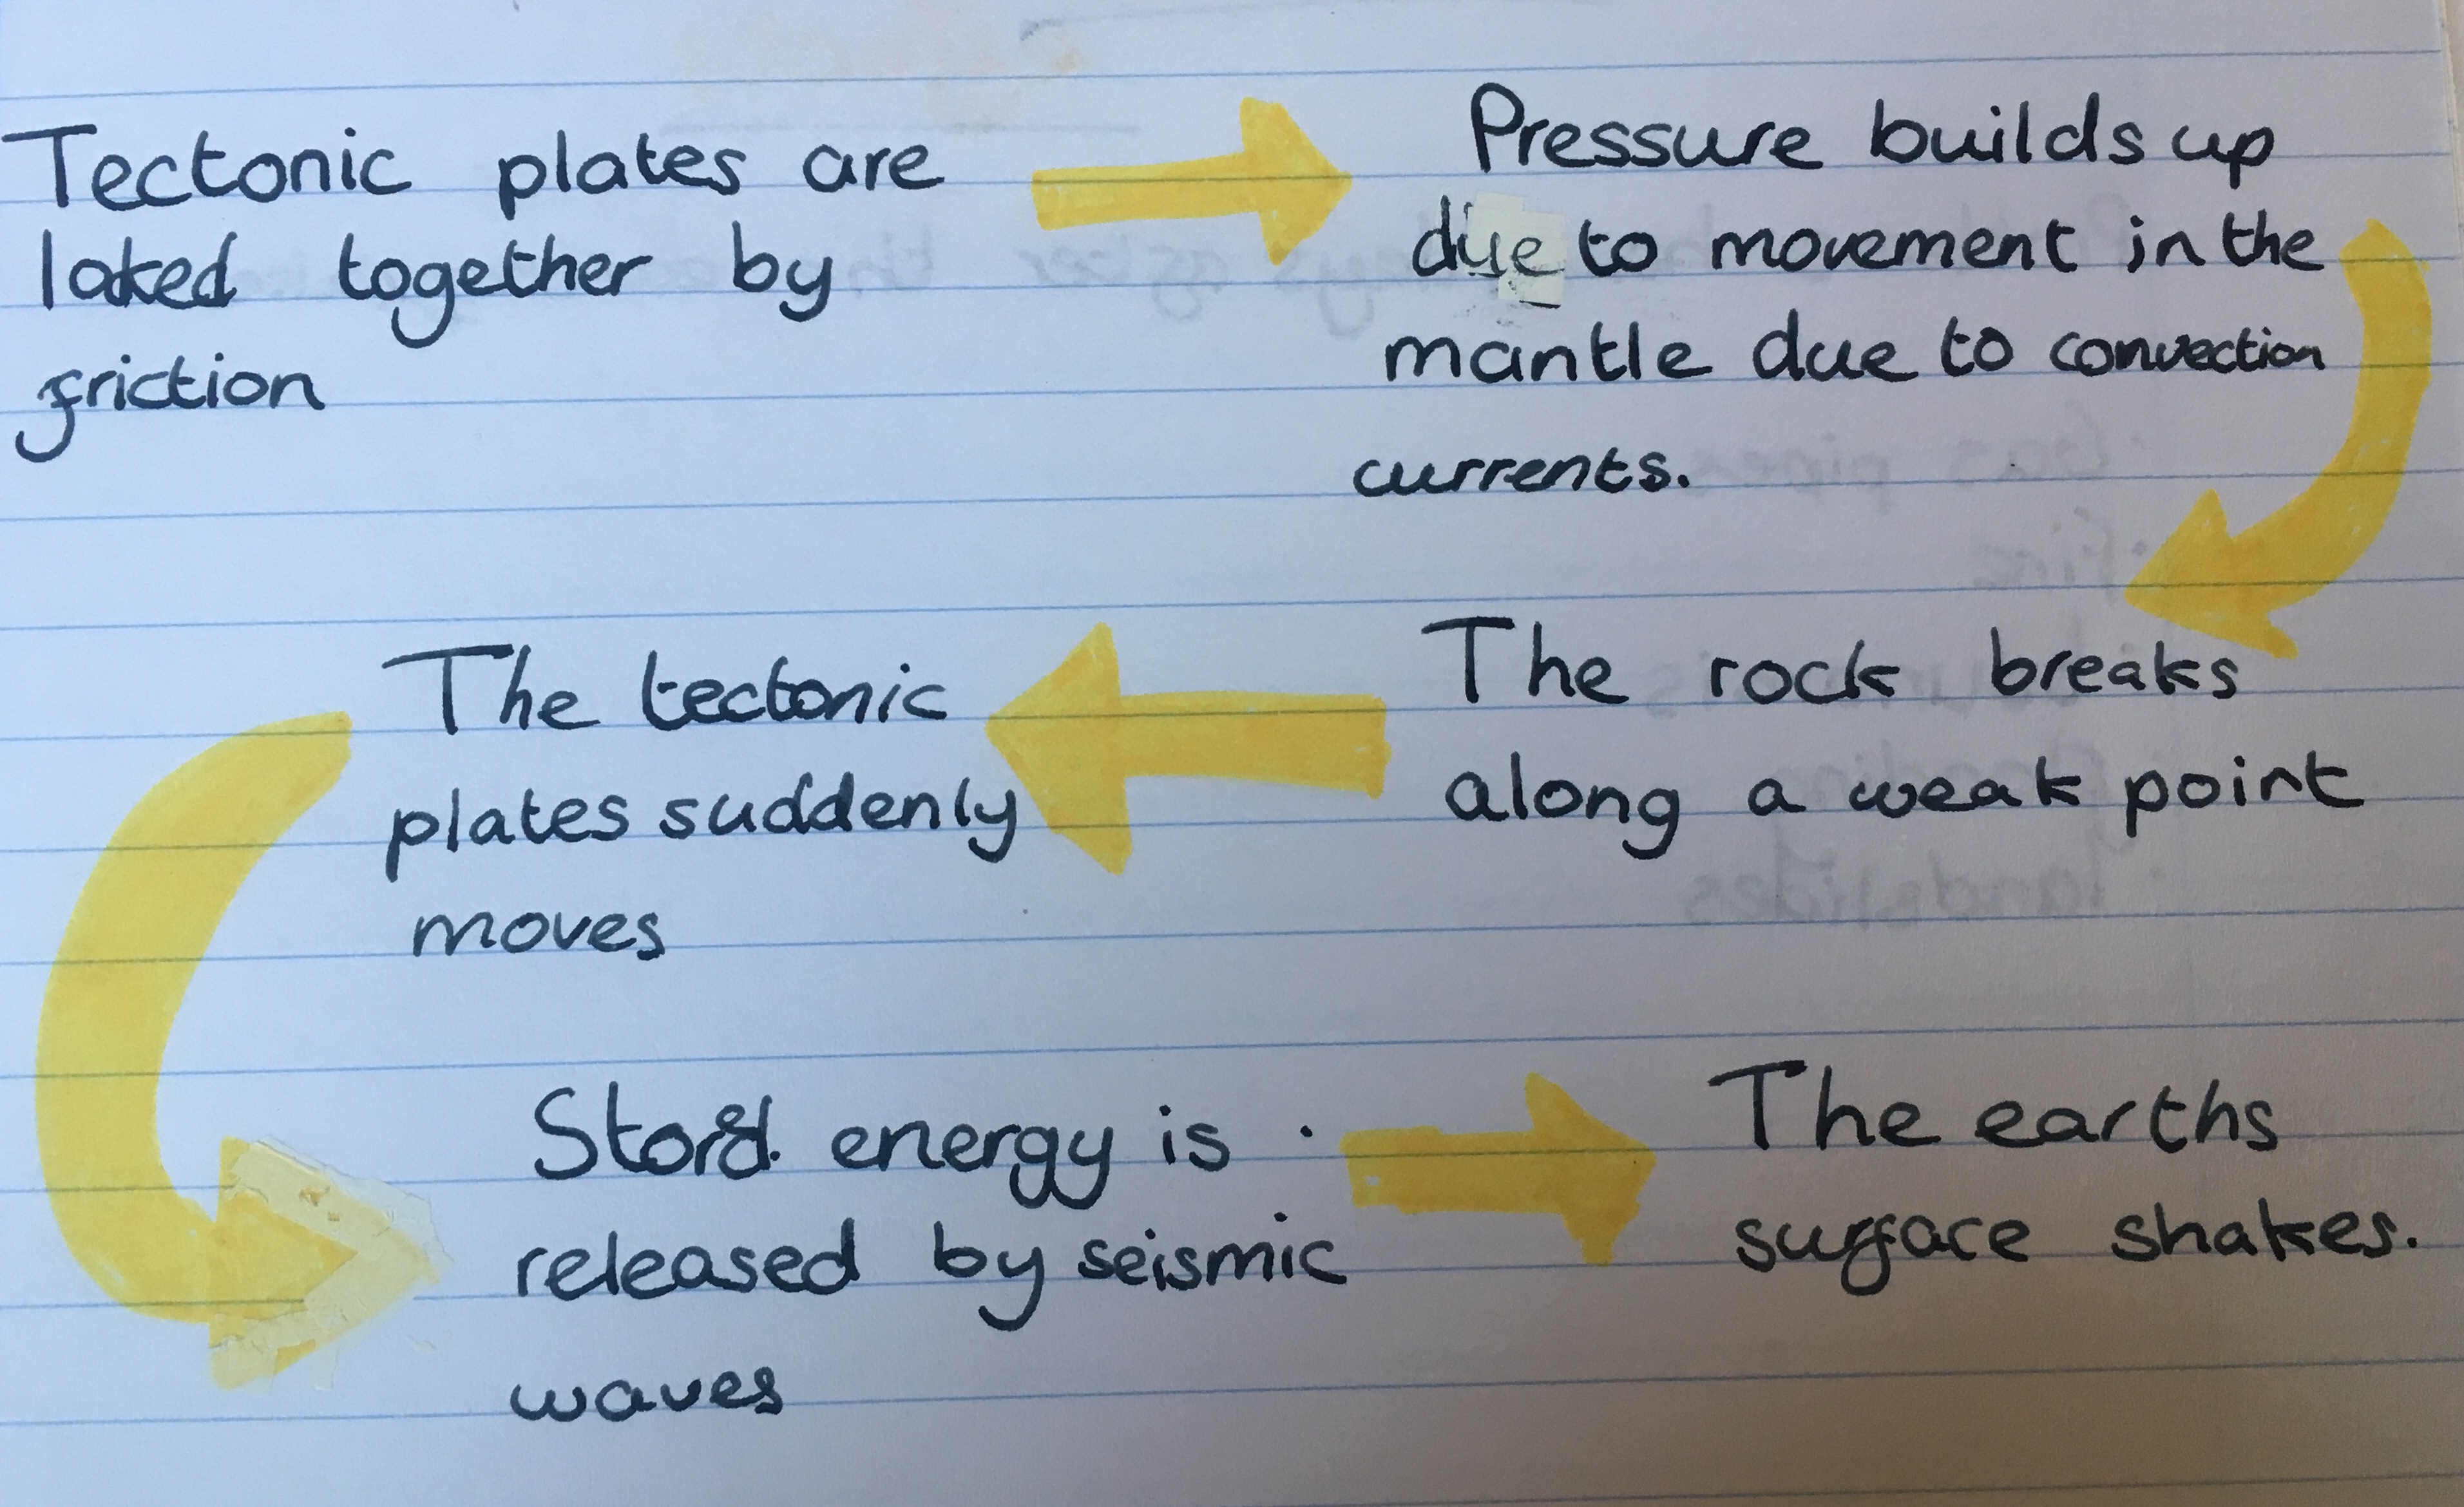 Tectonic plates are
loked together by
friction
Pressure builds up
due to movement in the
mantle due to convection
currents.
The rock breaks
along a weak point
The tectonic
plates suddenly
moves
Stord. energy is
released by seismic
waves
The earths
surface shakes.